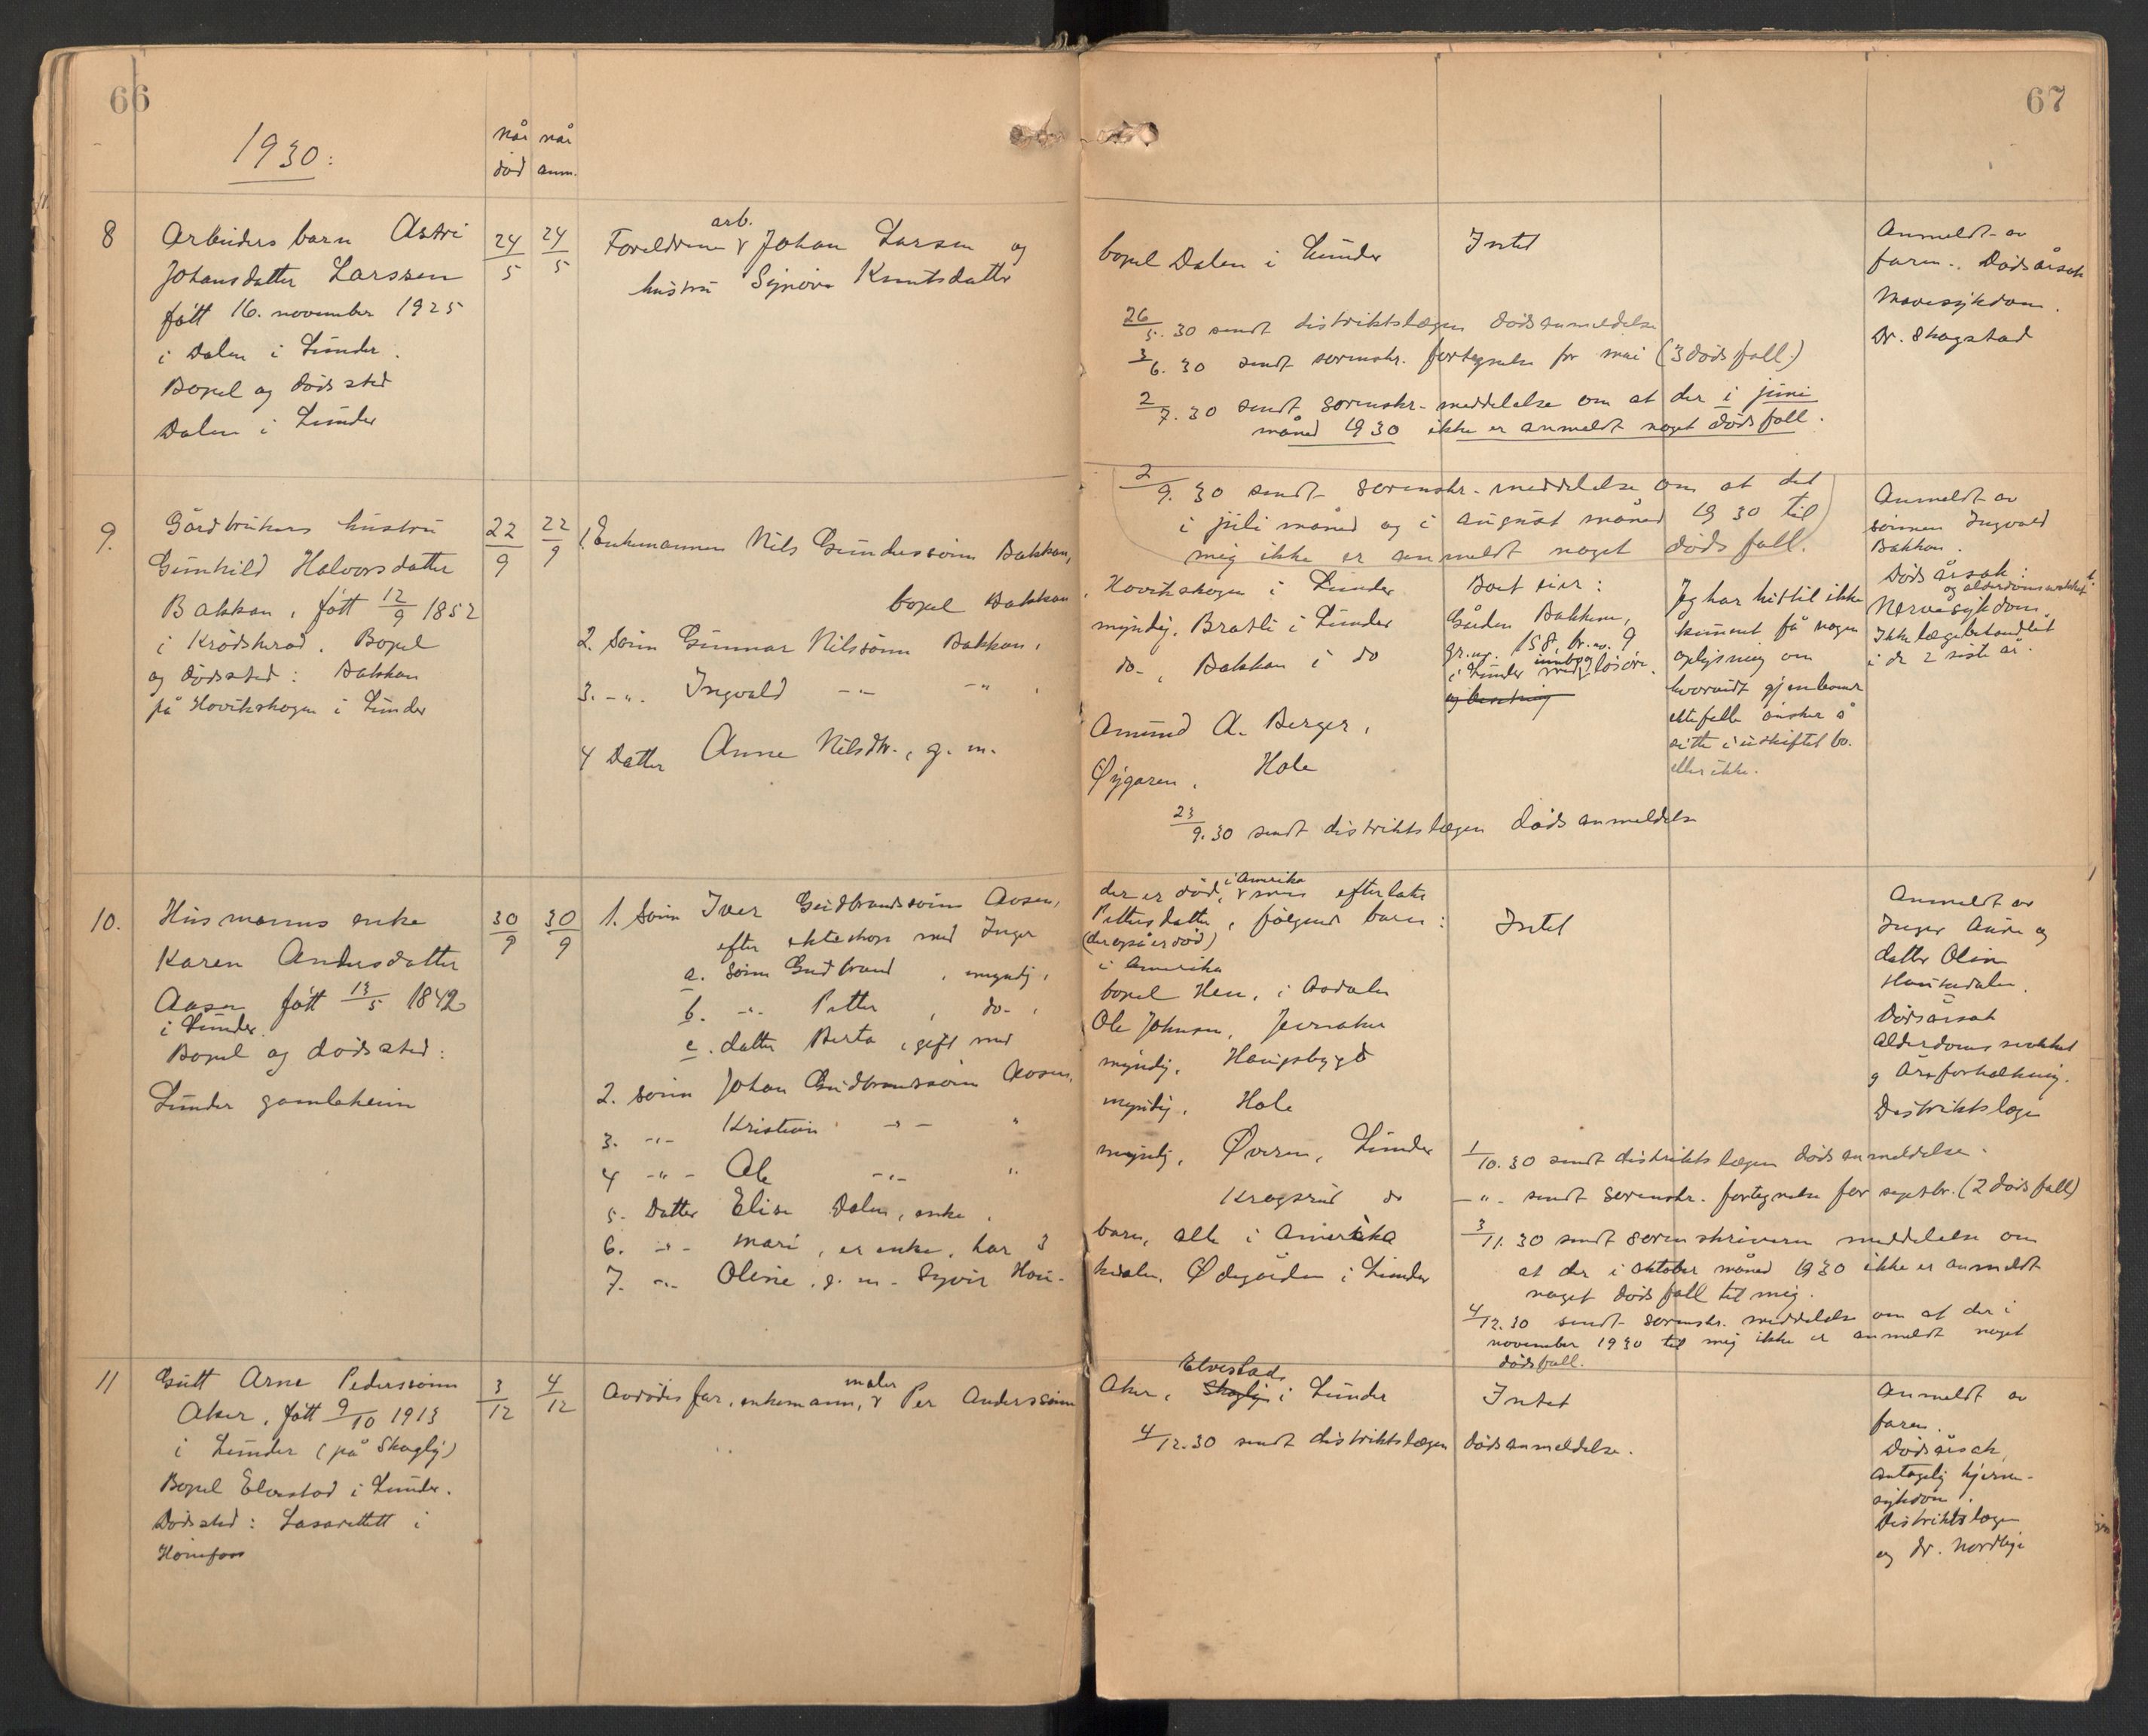 66
67
1930:
når når
død anm.
8
Arbeiders barn Astri
Johansdatter Larssen
født 16. november 1925
i Dalen i Lunder.
Bopel og dødssted
Dalen i Lunder
24/5
24/5
arb.
Foreldrene Johan Larsen og
hustru Synøve Knutsdatter
bopel Dalen i Lunder
Intet
26/5. 30 sendt distriktslægen dødsanmeldelse
3/6. 30 sendt sorenskr. fortegnelse for mai (3 dødsfall)
2/7. 30 sendt sorenskr. meddelelse om at der i juni
måned 1930 ikke er anmeldt noget dødsfall.
Anmeldt av
faren. Dødsårsak
Mavesykdom.
Dr. Skagstad
9.
Gårdbrukers hustru
Gunhild Halvorsdatter
Bakkan, født 12/9 1852
i Krødsherad. Bopel
og dødssted: Bakkan
på Hovikskogen i Lunder
22/9
22/9
1. Enkemannen Nils Gunderssønn Bakkan,
bopel Bakkan
2. Sønn Gunnar Nilssønn Bakkan,
3. -"- Ingvald -"- -"- ,
4 Datter Anne Nilsdtr., g. m.
2/9. 30 sendt sorenskr. meddelelse om at det
i juli måned og i august måned 1930 til
mig ikke er anmeldt noget dødsfall.
, Hovikskogen i Lunder
myndig, Bratli i Lunder
do- , Bakkan i do
Amund A. Berger,
Øygaren, Hole
Boet eier:
Gården Bakken,
gr.nr. 158, br.nr. 9
i Lunder med innbo og løsøre.
og besetning
Jeg har hittil ikke
kunnet få nogen
oplysning om
hvorvidt gjenlevende
ektefelle ønsker å
sitte i uskiftet bo.
eller ikke.
Anmeldt av
sønnen Ingvald
Bakkan.
Dødsårsak:
og alderdomssvakhet
Nervesykdom.
Ikke lægebehandlet
i de 2 siste år.
23/9. 30 sendt distriktslægen dødsanmeldelse
10.
Husmanns enke
Karen Andersdatter
Aasen født 13/5 1842
i Lunder.
Bopel og dødssted:
Lunder gamleheim
30/9
30/9
1. Sønn Iver Gudbrandssønn Aasen,
efter ekteskap med Inger
a. Sønn Gudbrand , myndig,
b. -"- Petter , do- ,
c. datter Berta , gift med
2. sønn Johan Gudbrandssønn Aasen,
3. -"- Kristian -"- "
4 -"- Ole -"- "
5. Datter Elise Dalen, enke,
6. -"- Mari, er enke, har 3
7. -"- Oline, g. m. Syver Hau-
der er død, i Amerika som efterlater
Pettersdatter, følgende barn:
(der også er død)
i Amerika
bopel Hen, i Aadalen
Ole Johnsen, Jevnaker
myndig, Haugsbygd
myndig, Hole
myndig, Øveren, Lunder
Kragsrud do
barn, alle i Amerika
kedalen, Ødegården i Lunder
Intet
Anmeldt av
Inger Aure og
datter Oline
Haukedalen.
Dødsårsak
Alderdomssvakhet
og Åreforkalkning.
Distriktslægen
1/10. 30 sendt distriktslægen dødsanmeldelse.
-"- sendt sorenskr. fortegnelse for septbr. (2 dødsfall)
3/11. 30 sendt sorenskriveren meddelelse om
at der i oktober måned 1930 ikke er anmeldt
noget dødsfall til mig.
4/12. 30 sendt sorenskr. meddelelse om at der i
november 1930 til mig ikke er anmeldt noget
dødsfall.
11
Gutt Arne Pederssønn
Aker, født 9/10 1913
i Lunder (på Skogly)
Bopel Elvestad i Lunder.
Dødssted: Lasarettet i
Hønefoss
3/12
4/12
maler
Avdødes far, enkemann, Per Anderssønn
Elvestad,
Aker, Skogly i Lunder
Intet
4/12. 30 sendt distriktslægen dødsanmeldelse.
Anmeldt av
faren.
Dødsårsak,
antagelig hjerne-
sykdom.
Distriktslægen
og dr. Nordlie